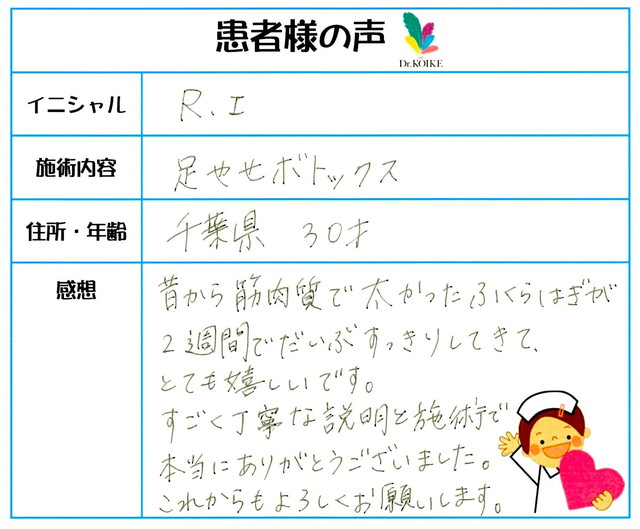 患者様の声
Dr.KOIKE
イニシャル
R.I
施術内容
足やせボトックス
住所・年齢
千葉県 30才
感想
昔から筋肉質で太かったふくらはぎが
2週間でだいぶすっきりしてきて、
とても嬉しいです。
すごく丁寧な説明と施術で
本当にありがとうございました。
これからもよろしくお願いします。